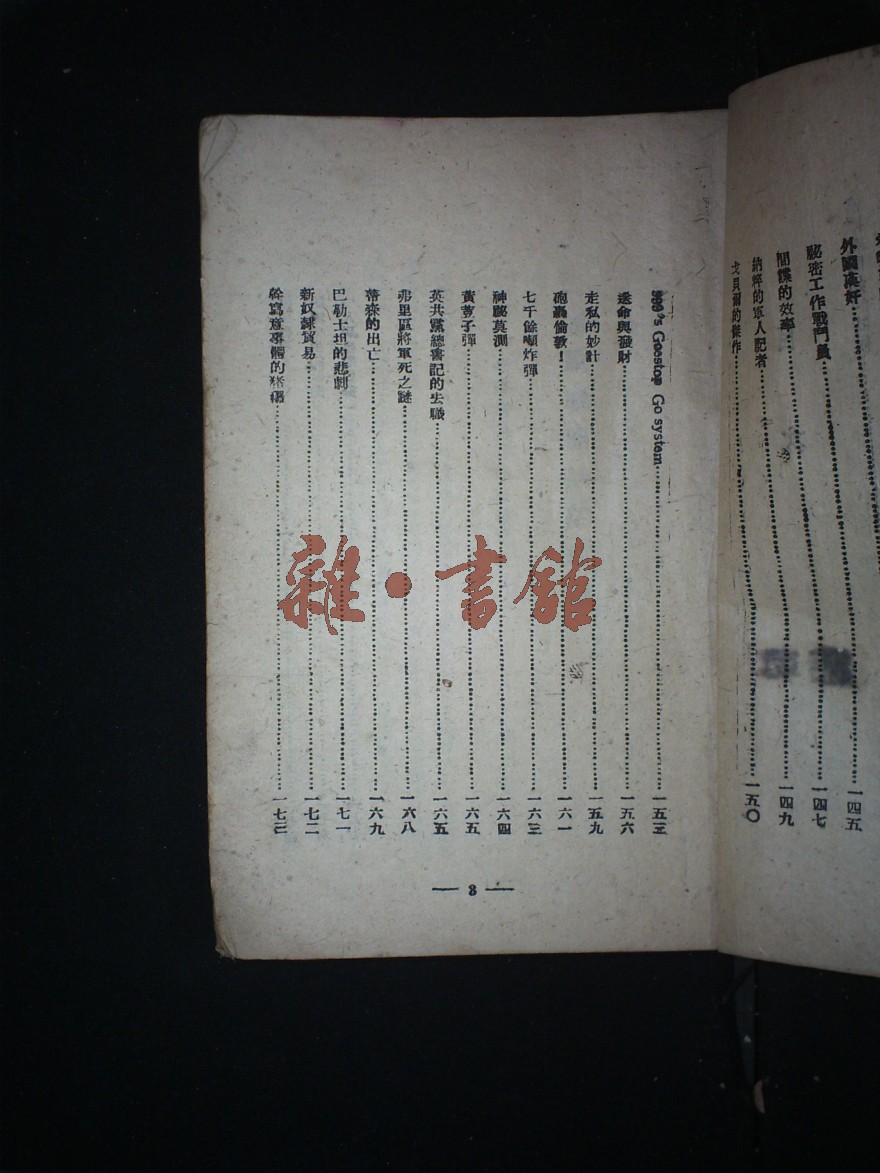 外國漢奸………一四五
秘密工作戰鬥員………一四七
間諜的效率………一四九
納粹的軍人記者
戈貝爾的傑作………一五〇
999's Goostop Go system………一五三
送命與發財………一五六
走私的妙計………一五九
砲轟倫敦！………一六一
七千餘噸炸彈………一六三
神秘莫測………一六四
黃芽子彈………一六五
英共黨總書記的去職………一六五
弗里區將軍死之謎………一六八
蒂森的出亡………一六九
巴勒士坦的悲劇………一七一
新奴隸貿易………一七二
幹寫意事情的………一七三
— 3 —
雜·書館